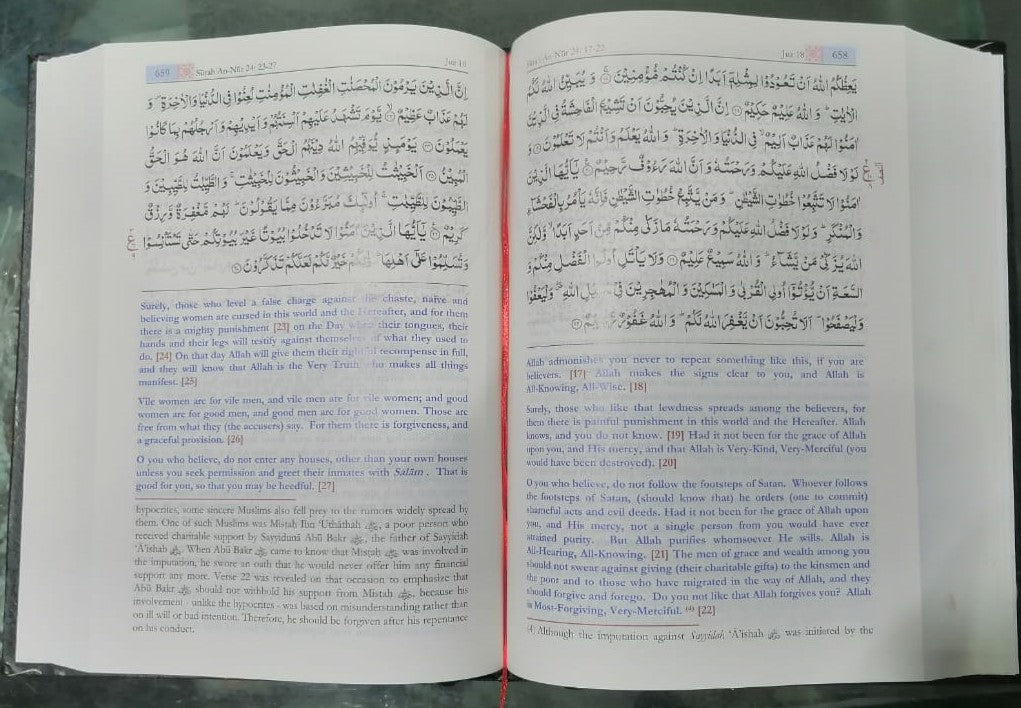 Sūrah An-Nūr 24: 17-22 Juz 18 658
يَعِظُكُمُ اللهُ اَنْ تَعُوْدُوْا لِمِثْلِهٖۤ اَبَدًا اِنْ كُنْتُمْ مُّؤْمِنِيْنَ ۝ وَ يُبَيِّنُ اللهُ لَكُمُ
الْاٰيٰتِ ؕ وَ اللهُ عَلِيْمٌ حَكِيْمٌ ۝ اِنَّ الَّذِيْنَ يُحِبُّوْنَ اَنْ تَشِيْعَ الْفَاحِشَةُ فِي الَّذِيْنَ
اٰمَنُوْا لَهُمْ عَذَابٌ اَلِيْمٌ ۙ فِي الدُّنْيَا وَ الْاٰخِرَةِ ؕ وَ اللهُ يَعْلَمُ وَ اَنْتُمْ لَا تَعْلَمُوْنَ ۝ وَ
لَوْ لَا فَضْلُ اللهِ عَلَيْكُمْ وَ رَحْمَتُهٗ وَ اَنَّ اللهَ رَءُوْفٌ رَّحِيْمٌ ۝ يٰۤاَيُّهَا الَّذِيْنَ
اٰمَنُوْا لَا تَتَّبِعُوْا خُطُوٰتِ الشَّيْطٰنِ ؕ وَ مَنْ يَّتَّبِعْ خُطُوٰتِ الشَّيْطٰنِ فَاِنَّهٗ يَاْمُرُ بِالْفَحْشَآءِ
وَ الْمُنْكَرِ ؕ وَ لَوْ لَا فَضْلُ اللهِ عَلَيْكُمْ وَ رَحْمَتُهٗ مَا زَكٰى مِنْكُمْ مِّنْ اَحَدٍ اَبَدًا ۙ وَّ لٰكِنَّ
اللهَ يُزَكِّيْ مَنْ يَّشَآءُ ؕ وَ اللهُ سَمِيْعٌ عَلِيْمٌ ۝ وَ لَا يَاْتَلِ اُولُوا الْفَضْلِ مِنْكُمْ وَ
السَّعَةِ اَنْ يُّؤْتُوْۤا اُولِي الْقُرْبٰى وَ الْمَسٰكِيْنَ وَ الْمُهٰجِرِيْنَ فِيْ سَبِيْلِ اللهِ ۖ وَ لْيَعْفُوْا
وَ لْيَصْفَحُوْا ؕ اَلَا تُحِبُّوْنَ اَنْ يَّغْفِرَ اللهُ لَكُمْ ؕ وَ اللهُ غَفُوْرٌ رَّحِيْمٌ ۝
Allah admonishes you never to repeat something like this, if you are
believers. [17] Allah makes the signs clear to you, and Allah is
All-Knowing, All-Wise. [18]
Surely, those who like that lewdness spreads among the believers, for
them there is painful punishment in this world and the Hereafter. Allah
knows, and you do not know. [19] Had it not been for the grace of Allah
upon you, and His mercy, and that Allah is Very-Kind, Very-Merciful (you
would have been destroyed). [20]
O you who believe, do not follow the footsteps of Satan. Whoever follows
the footsteps of Satan, (should know that) he orders (one to commit)
shameful acts and evil deeds. Had it not been for the grace of Allah upon
you, and His mercy, not a single person from you would have ever
attained purity. But Allah purifies whomsoever He wills. Allah is
All-Hearing, All-Knowing. [21] The men of grace and wealth among you
should not swear against giving (their charitable gifts) to the kinsmen and
the poor and to those who have migrated in the way of Allah, and they
should forgive and forego. Do you not like that Allah forgives you? Allah
is Most-Forgiving, Very-Merciful. (4) [22]
(4) Although the imputation against Sayyidah ‘Ā’ishah was initiated by the
659 Sūrah An-Nūr 24: 23-27 Juz 18
اِنَّ الَّذِيْنَ يَرْمُوْنَ الْمُحْصَنٰتِ الْغٰفِلٰتِ الْمُؤْمِنٰتِ لُعِنُوْا فِي الدُّنْيَا وَ الْاٰخِرَةِ ۪ وَ
لَهُمْ عَذَابٌ عَظِيْمٌ ۝ يَّوْمَ تَشْهَدُ عَلَيْهِمْ اَلْسِنَتُهُمْ وَ اَيْدِيْهِمْ وَ اَرْجُلُهُمْ بِمَا كَانُوْا
يَعْمَلُوْنَ ۝ يَوْمَىِٕذٍ يُّوَفِّيْهِمُ اللهُ دِيْنَهُمُ الْحَقَّ وَ يَعْلَمُوْنَ اَنَّ اللهَ هُوَ الْحَقُّ
الْمُبِيْنُ ۝ اَلْخَبِيْثٰتُ لِلْخَبِيْثِيْنَ وَ الْخَبِيْثُوْنَ لِلْخَبِيْثٰتِ ۚ وَ الطَّيِّبٰتُ لِلطَّيِّبِيْنَ وَ
الطَّيِّبُوْنَ لِلطَّيِّبٰتِ ۚ اُولٰٓىِٕكَ مُبَرَّءُوْنَ مِمَّا يَقُوْلُوْنَ ؕ لَهُمْ مَّغْفِرَةٌ وَّ رِزْقٌ
كَرِيْمٌ ۝ يٰۤاَيُّهَا الَّذِيْنَ اٰمَنُوْا لَا تَدْخُلُوْا بُيُوْتًا غَيْرَ بُيُوْتِكُمْ حَتّٰى تَسْتَاْنِسُوْا
وَ تُسَلِّمُوْا عَلٰۤى اَهْلِهَا ؕ ذٰلِكُمْ خَيْرٌ لَّكُمْ لَعَلَّكُمْ تَذَكَّرُوْنَ ۝
Surely, those who level a false charge against the chaste, naïve and
believing women are cursed in this world and the Hereafter, and for them
there is a mighty punishment [23] on the Day when their tongues, their
hands and their legs will testify against themselves of what they used to
do. [24] On that day Allah will give them their rightful recompense in full,
and they will know that Allah is the Very Truth who makes all things
manifest. [25]
Vile women are for vile men, and vile men are for vile women; and good
women are for good men, and good men are for good women. Those are
free from what they (the accusers) say. For them there is forgiveness, and
a graceful provision. [26]
O you who believe, do not enter any houses, other than your own houses
unless you seek permission and greet their inmates with Salām . That is
good for you, so that you may be heedful. [27]
hypocrites, some sincere Muslims also fell prey to the rumors widely spread by
them. One of such Muslims was Misṭaḥ Ibn ‘Uthāthah , a poor person who
received charitable support by Sayyidunā Abū Bakr , the father of Sayyidah
‘Ā’ishah . When Abū Bakr came to know that Misṭaḥ was involved in
the imputation, he swore an oath that he would never offer him any financial
support any more. Verse 22 was revealed on that occasion to emphasize that
Abū Bakr should not withhold his support from Misṭaḥ , because his
involvement - unlike the hypocrites - was based on misunderstanding rather than
on ill will or bad intention. Therefore, he should be forgiven after his repentance
on his conduct.